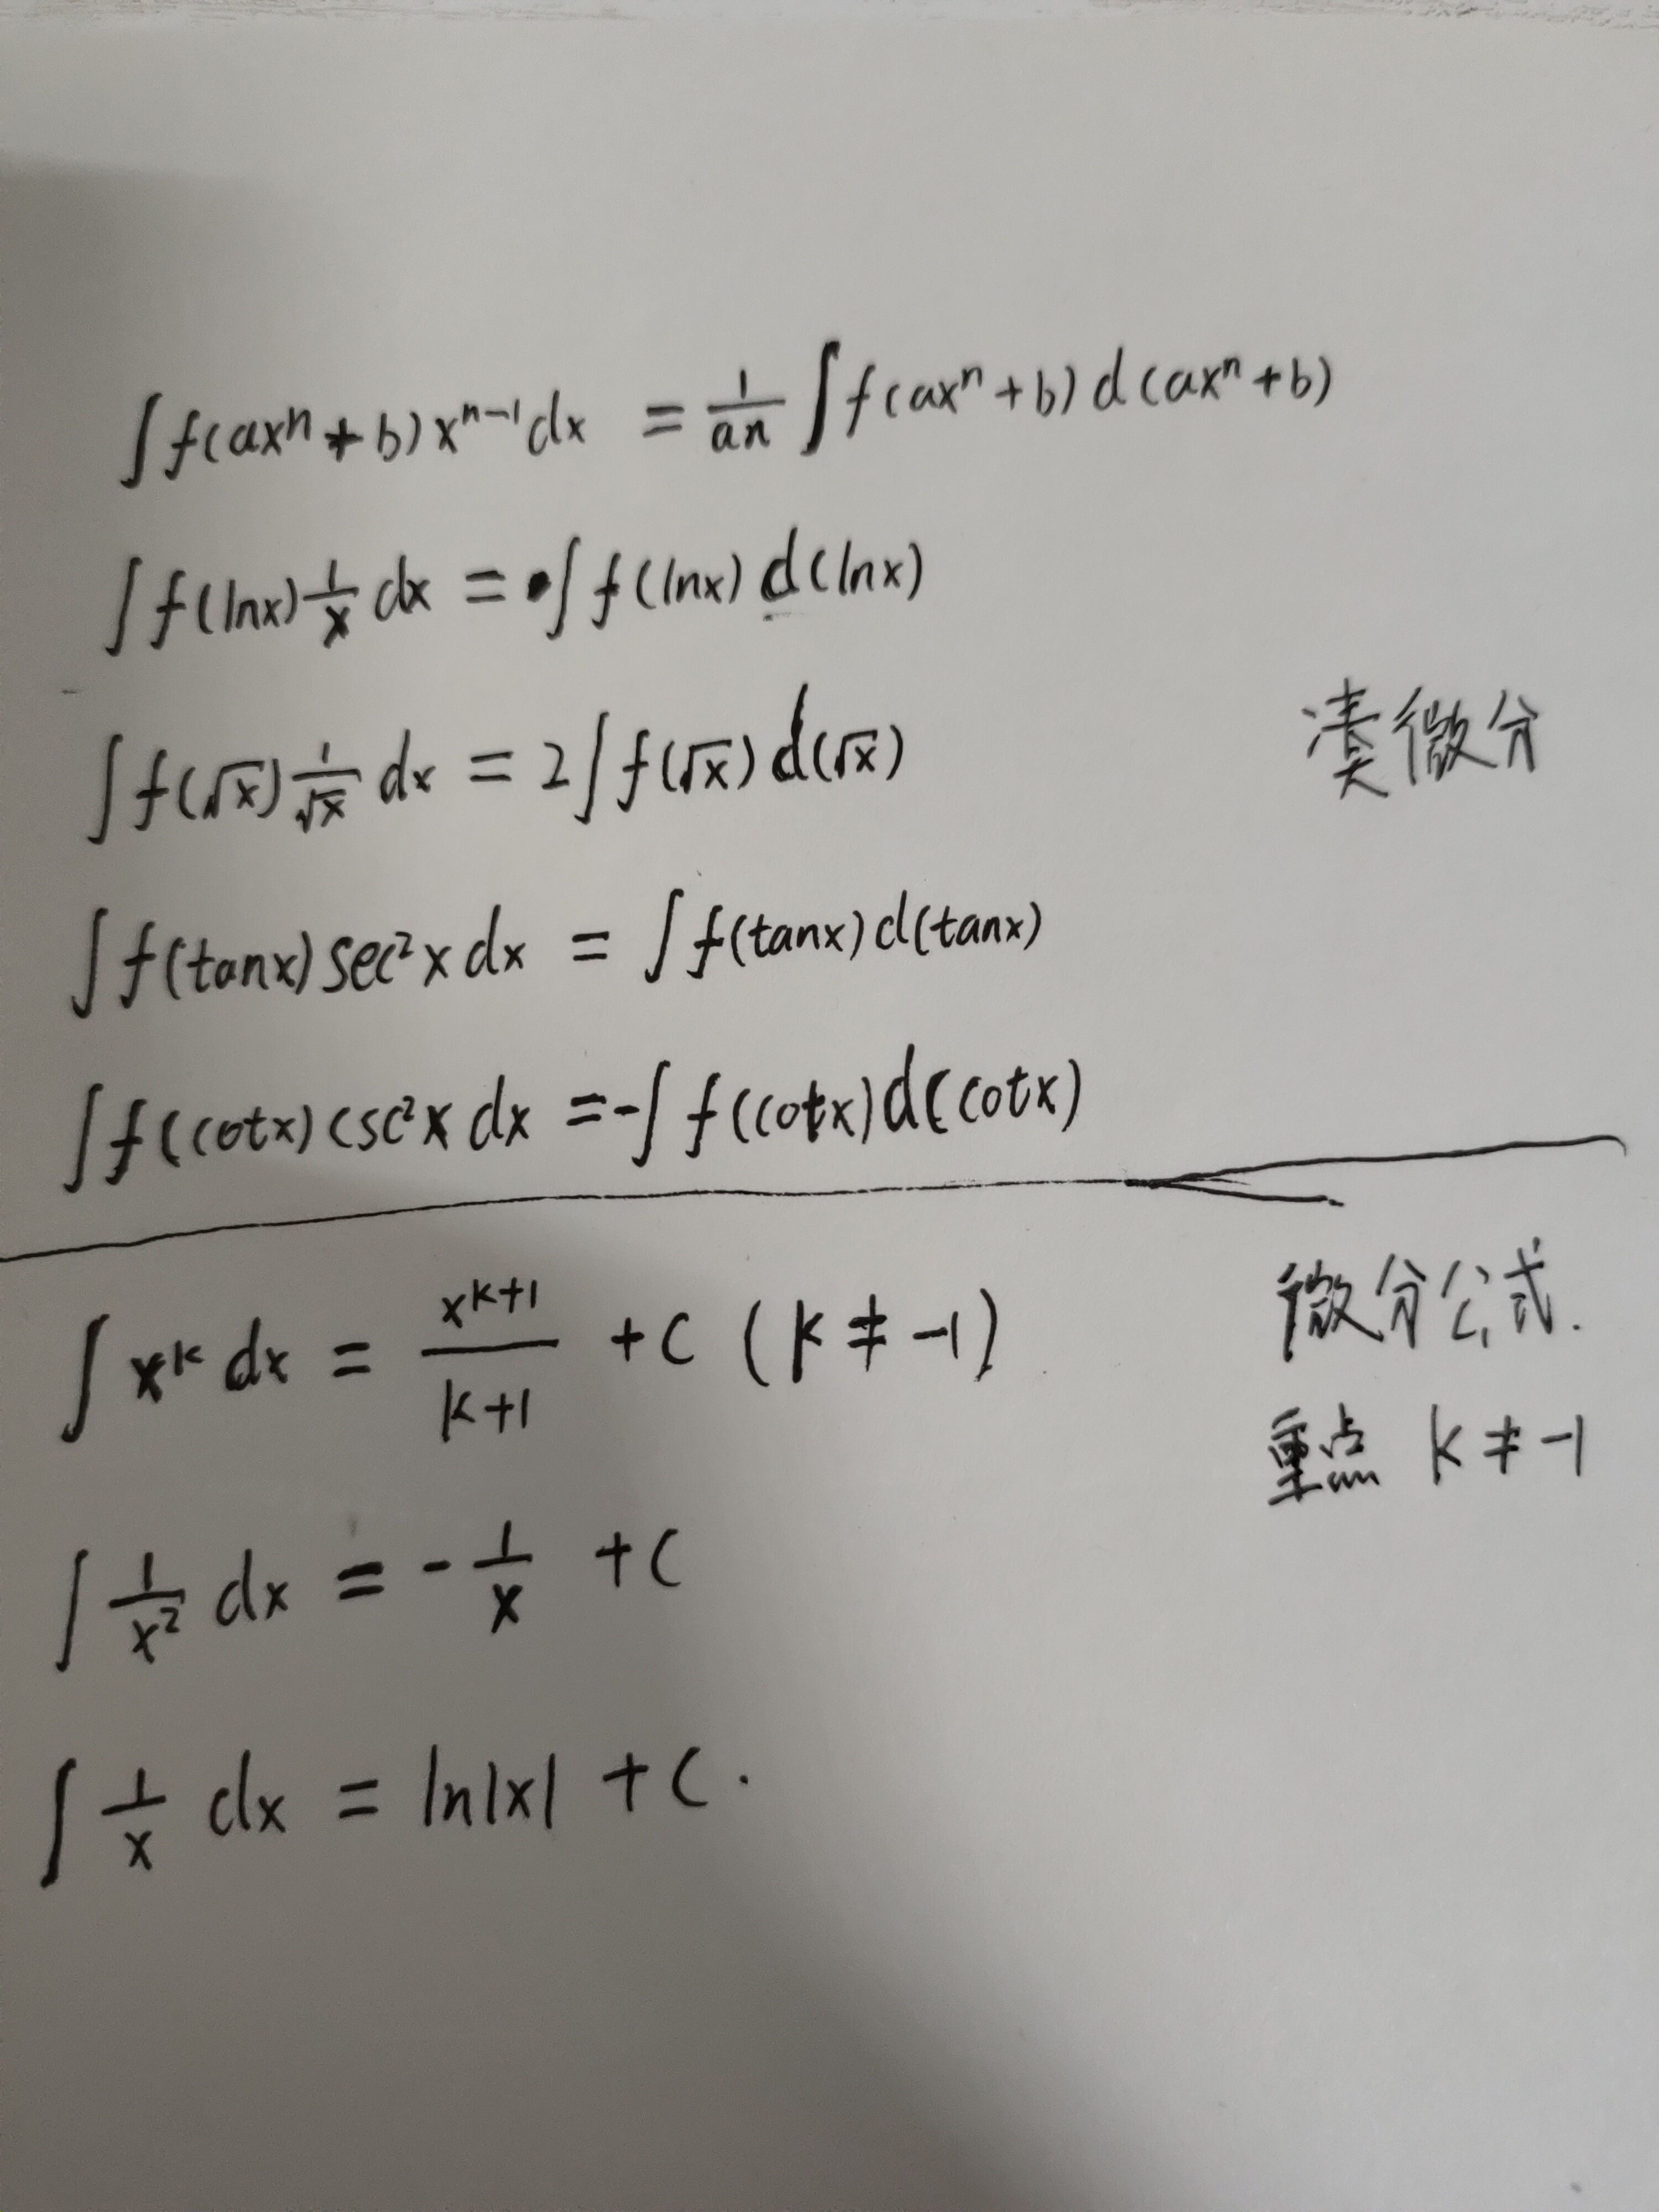 ∫f(axⁿ+b)xⁿ⁻¹dx = 1/(an) ∫f(axⁿ+b)d(axⁿ+b)
∫f(lnx) 1/x dx = ∫f(lnx)d(lnx)
∫f(√x) 1/√x dx = 2∫f(√x)d(√x)
凑微分
∫f(tanx)sec²x dx = ∫f(tanx)d(tanx)
∫f(cotx)csc²x dx = -∫f(cotx)d(cotx)
∫xᵏdx = xᵏ⁺¹/(k+1) +C (k≠-1)
微分公式.
重点 k≠-1
∫1/x² dx = -1/x +C
∫1/x dx = ln|x| +C.